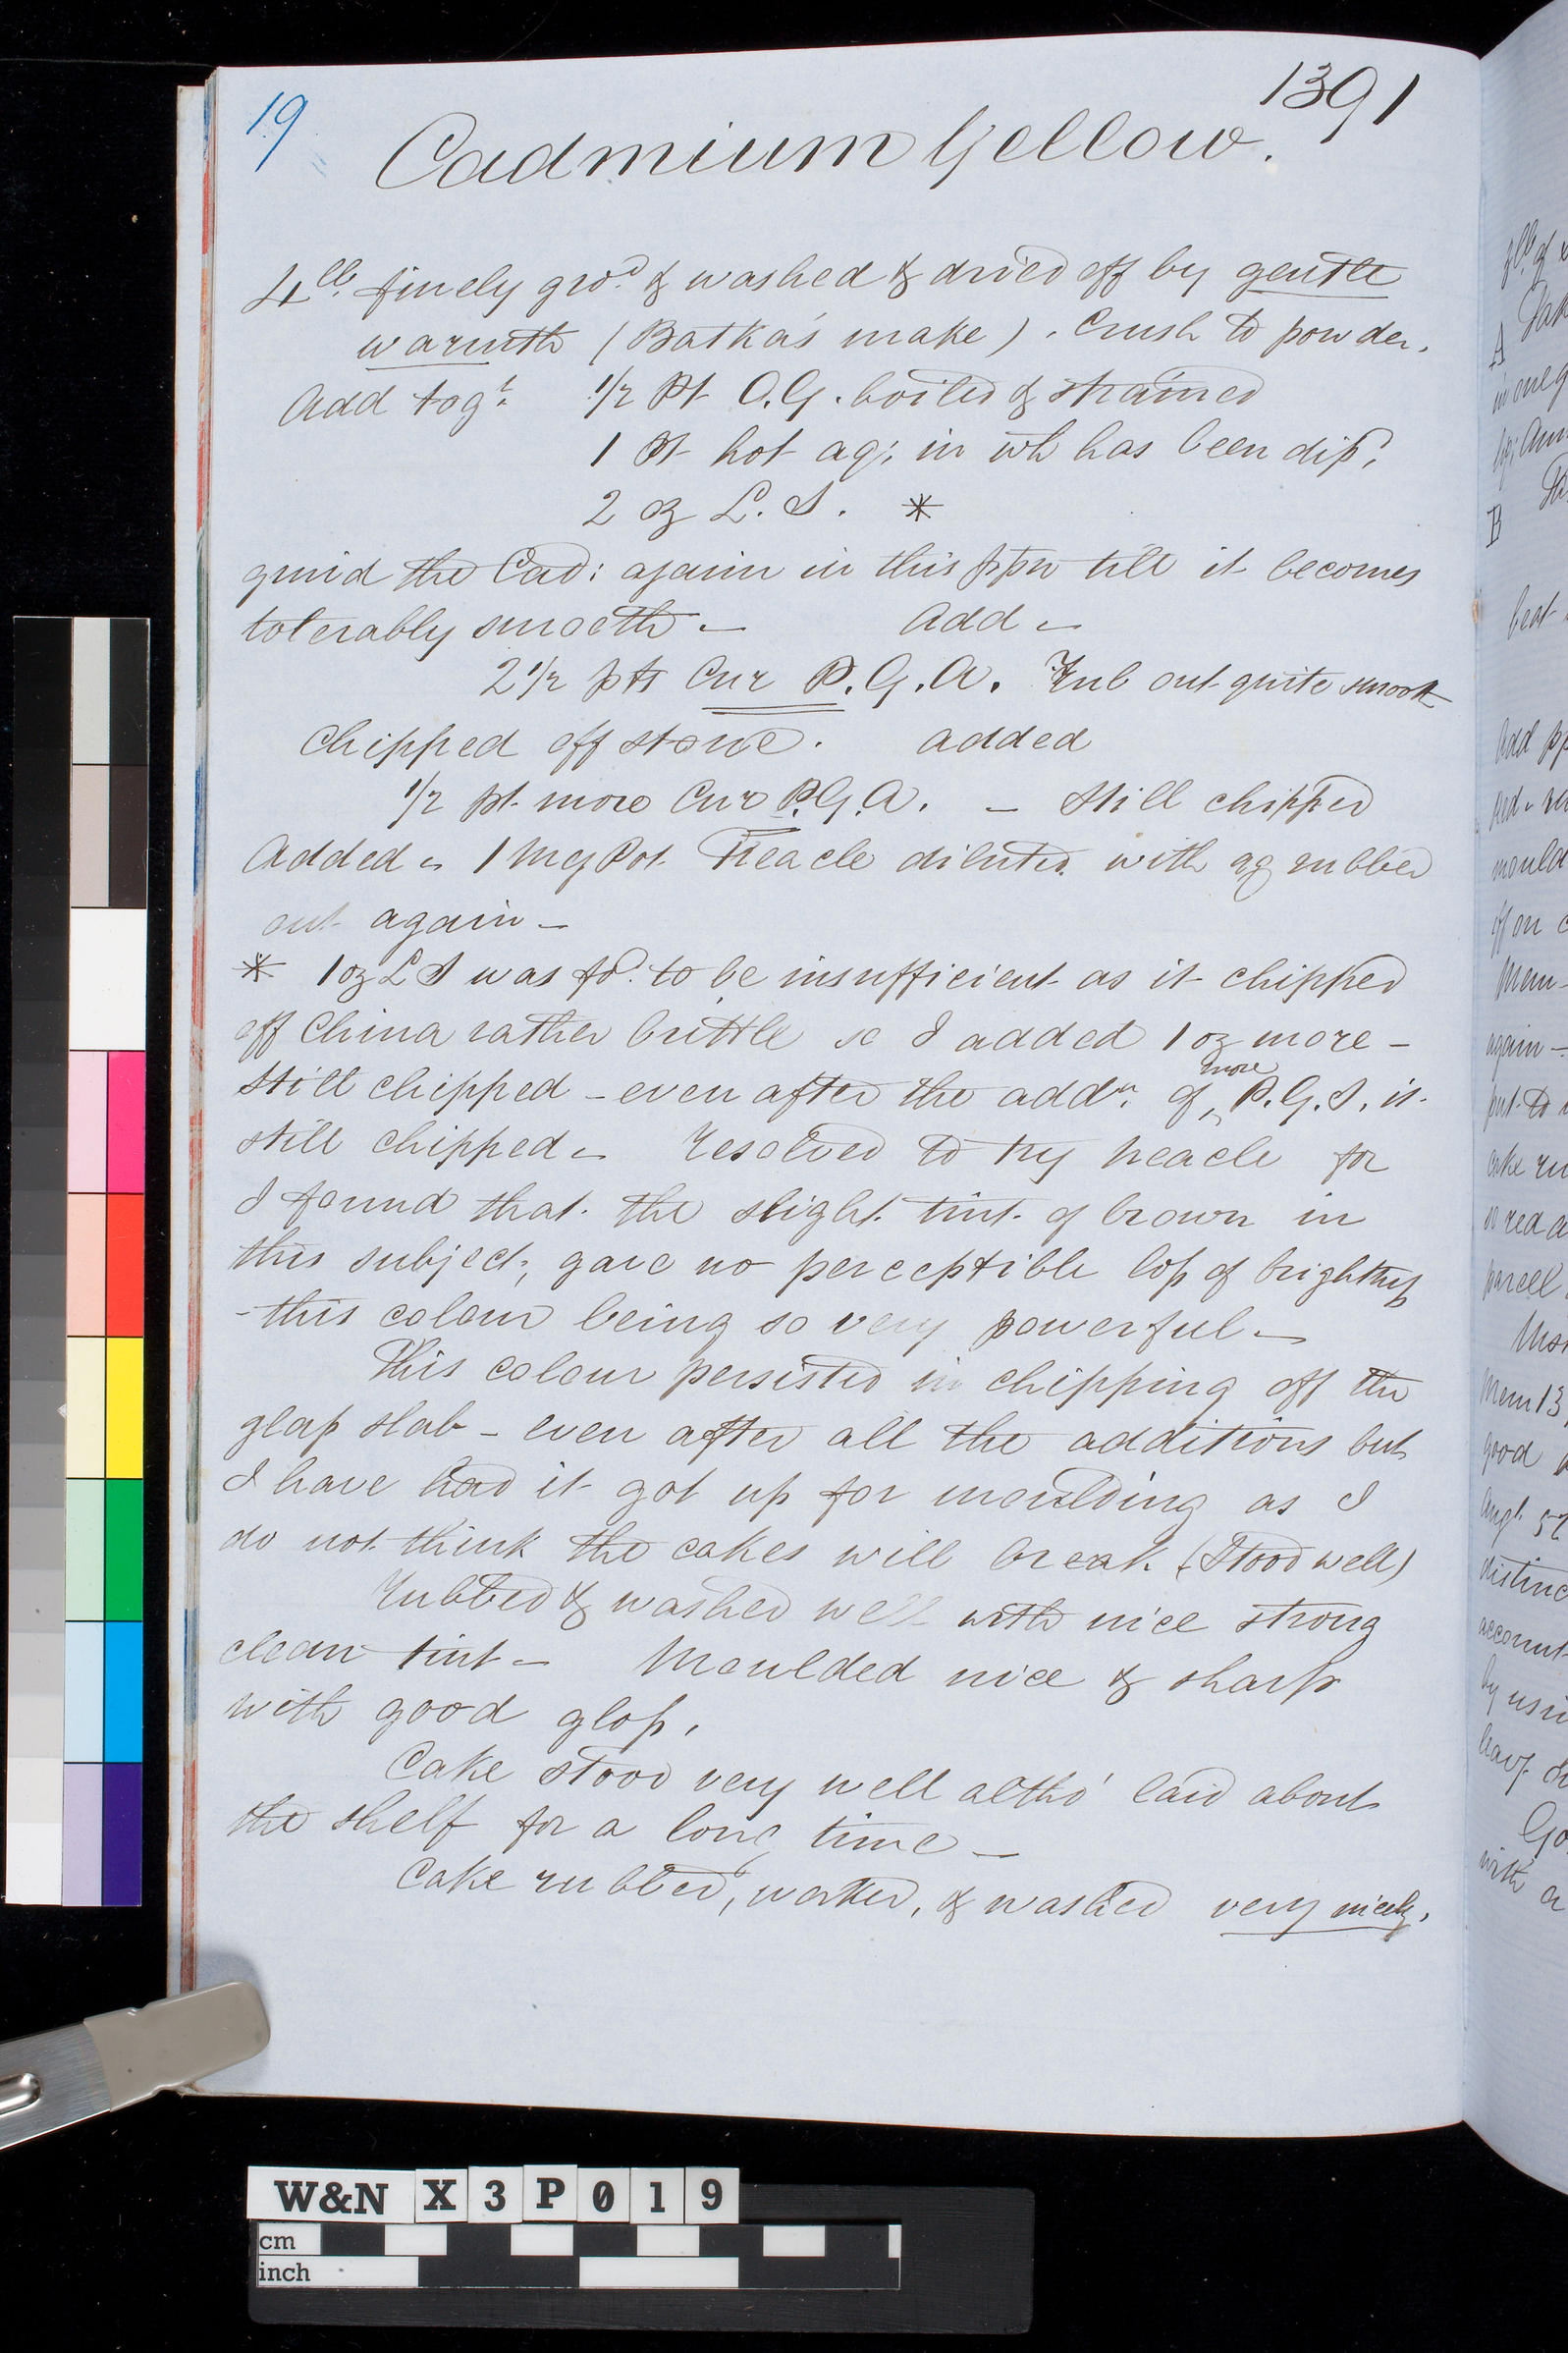 19
1391
Cadmium Yellow.
4lb. finely gro.d & washed & dried off by gentle
warmth (Batka's make). Crush to powder.
Add tog.r 1/2 Pt O.G. boiled & strained
1 Pt hot aq: in wh has been dis.d
2 oz L.S. *
grind the Cad: again in this ppn till it becomes
tolerably smooth - Add -
2 1/2 pts Cur P.G.A. Rub out quite smooth
Chipped off stone. added
1/2 pt. more Cur P.G.A. - Still chipped
Added - 1 Meg Pot Treacle diluted with aq rubbed
out again -
* 1oz L S was fo.d to be insufficient as it chipped
off China rather brittle so I added 1 oz more -
still chipped - even after the add.n of more P.G.S. it
still chipped - resolved to try treacle for
I found that the slight tint of brown in
this subject, gave no perceptible loss of brightness
- this colour being so very powerful -
This colour persisted in chipping off the
glass slab - even after all the additions but
I have had it got up for moulding as I
do not think the cakes will break (Stood well)
Rubbed & washed well with nice strong
clean tint - Moulded nice & sharp
with good gloss.
Cake stood very well altho' laid about
the shelf for a long time -
Cake rubbed, worked, & washed very nicely.
W&N X3P019
cm
inch